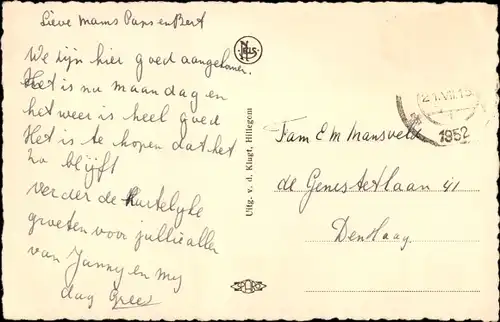 Lieve Mams Paps en Bert
We zijn hier goed aangekomen.
Het is nu maandag en
het weer is heel goed
Het is te hopen dat het
zo blijft
verder de hartelijke
groeten voor jullie allen
van Janny en my
dag Grees
NELS
Uitg. v. d. Klugt, Hillegom
SPORS
21.VII.15
1952
Fam E M Mansveld
de Genestetlaan 41
Den Haag.